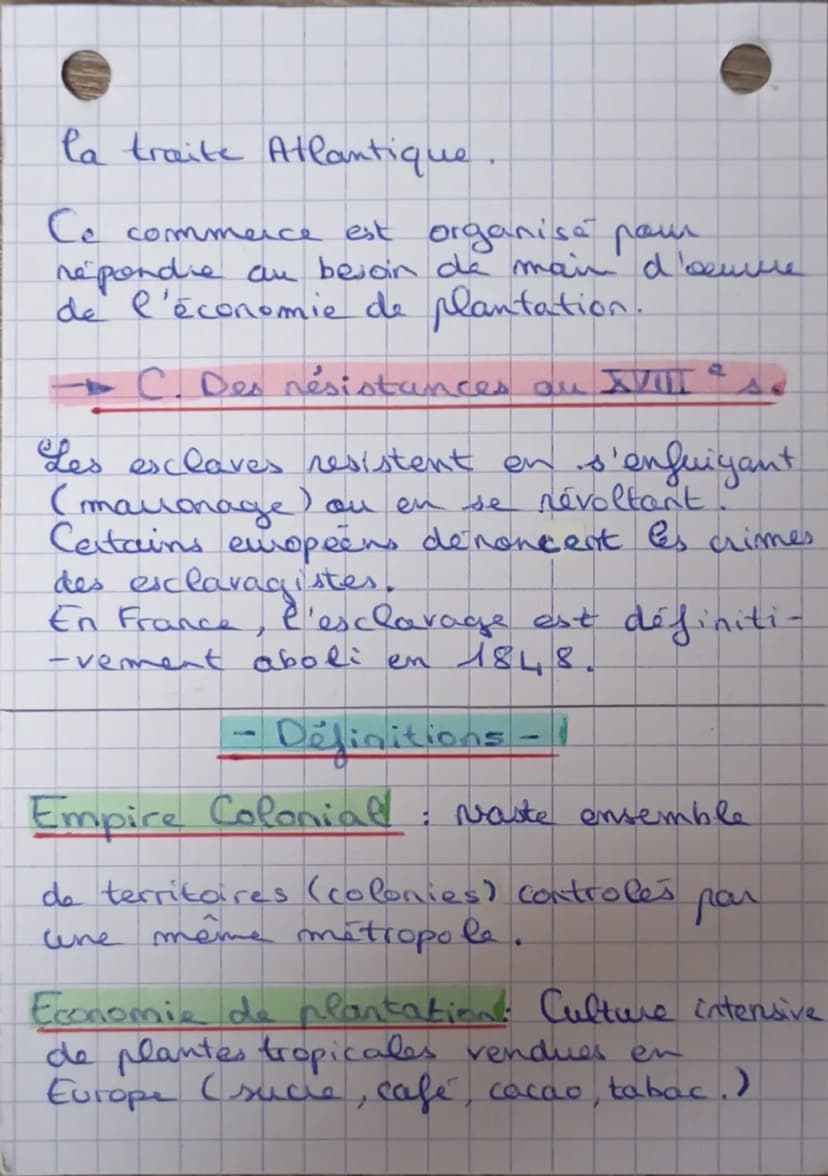 la traite Atlantique.
Ce commerce est organisé pour
répondre au besoin de main d'oeuvre
de l'économie de plantation.
→ C. Des résistances au XVIIIe s.
Les esclaves resistent en s'enfuiyant
(marronage) ou en se révoltant.
Certains européens dénoncent les crimes
des esclavagistes.
En France, l'esclavage est définiti-
-vement aboli en 1848.
- Définitions -
Empire Colonial : vaste ensemble
de territoires (colonies) controlés par
une même métropole.
Economie de plantation : Culture intensive
de plantes tropicales vendues en
Europe (sucre, café, cacao, tabac.)